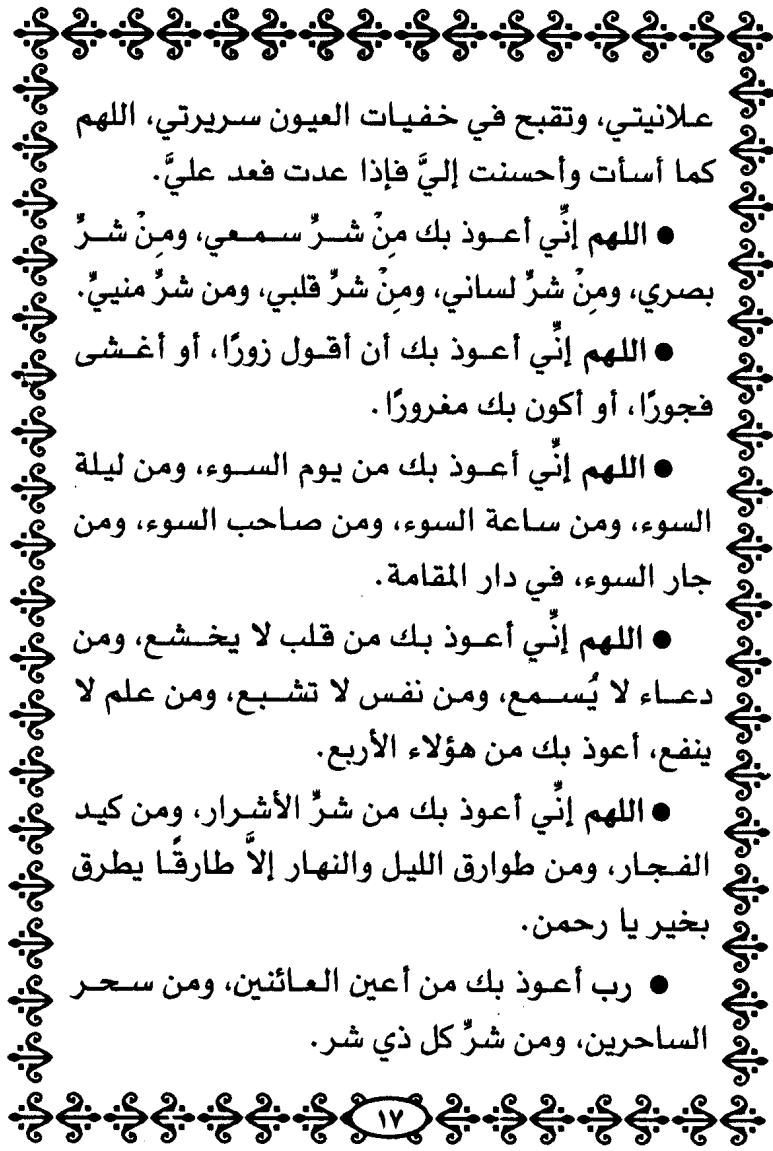 علانيتي، وتقبح في خفيات العيون سريرتي، اللهم
كما أسأت وأحسنت إليَّ فإذا عدت فعد عليَّ.
● اللهم إنِّي أعوذ بك منْ شرِّ سمعي، ومِنْ شرِّ
بصري، ومِنْ شرِّ لساني، ومِنْ شرِّ قلبي، ومن شرِّ منييِّ.
● اللهم إنِّي أعوذ بك أن أقول زورًا، أو أغشى
فجورًا، أو أكون بك مغرورًا.
● اللهم إنِّي أعوذ بك من يوم السوء، ومن ليلة
السوء، ومن ساعة السوء، ومن صاحب السوء، ومن
جار السوء، في دار المقامة.
● اللهم إنِّي أعوذ بك من قلب لا يخشع، ومن
دعاء لا يُسمع، ومن نفس لا تشبع، ومن علم لا
ينفع، أعوذ بك من هؤلاء الأربع.
● اللهم إنِّي أعوذ بك من شرِّ الأشرار، ومن كيد
الفجار، ومن طوارق الليل والنهار إلاَّ طارقًا يطرق
بخير يا رحمن.
● رب أعوذ بك من أعين العائنين، ومن سحر
الساحرين، ومن شرِّ كل ذي شر.
١٧